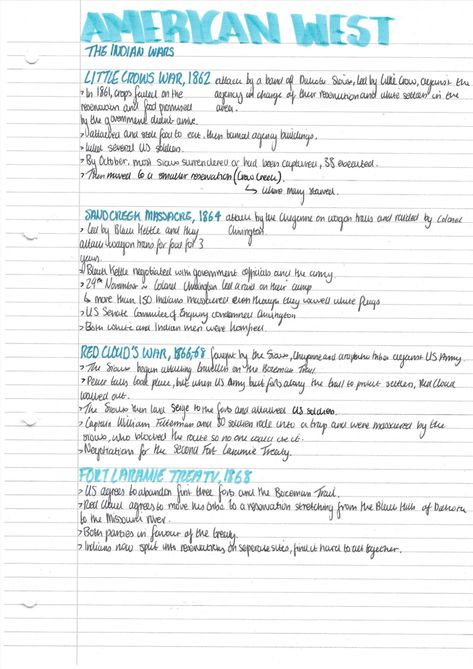 AMERICAN WEST
THE INDIAN WARS
LITTLE CROWS WAR, 1862 attack by a band of Dakota Sioux, led by Little Crow, against the
> In 1861, crops failed on the agency in charge of their reservation and white settlers in the
reservation and food promised area.
by the government didn't arrive.
> attacked and stole food to eat, then burned agency buildings.
> killed several US soldiers.
> By October, most Sioux surrendered or had been captured, 38 executed.
> Then moved to a smaller reservation (Crow Creek)
↳ where many starved.
SAND CREEK MASSACRE, 1864 attack by the Cheyenne on wagon trails and raided by Colonel
> Led by Black Kettle and they Chivington.
attack wagon trains for food for 3
years.
> Black Kettle negotiated with government officials and the army.
> 29th November = Colonel Chivington led a raid on their camp
↳ more than 150 Indians massacred even though they waved white flags
> US Senate Committee of Enquiry condemned Chivington
> Both white and Indian men were
RED CLOUD'S WAR, 1866-68 fought by the Sioux, Cheyenne and Arapaho tribes against US Army.
> The Sioux began attacking travellers on the Bozeman Trail
> Peace talks took place, but when US Army built forts along the trail to protect settlers, Red Cloud
walked out.
> The Sioux then laid seige to the forts and attacked US soldiers.
> Captain William Fetterman and 80 soldiers rode into a trap and were massacred by the
Sioux, who blocked the route so no one could use it.
> Negotiations for the second Fort Laramie Treaty.
FORT LARAMIE TREATY, 1868
> US agrees to abandon first three forts and the Bozeman Trail.
> Red Cloud agrees to move his tribe to a reservation stretching from the Black Hills of Dakota
to the Missouri river.
> Both parties in favour of the treaty.
> Indians now split into reservations on seperate sites, find it hard to act together.